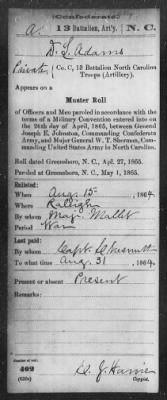 (Confederate.)
A. 13 Battalion, Art'y. N. C.
D. L. Adams
Private, Co. C, 13 Battalion North Carolina
Troops (Artillery).
Appears on a
Muster Roll
of Officers and Men paroled in accordance with the
terms of a Military Convention entered into on
the 26th day of April, 1865, between General
Joseph E. Johnston, Commanding Confederate
Army, and Major General W. T. Sherman, Com-
manding United States Army in North Carolina.
Roll dated Greensboro, N. C., Apl. 27, 1865.
Paroled at Greensboro, N. C., May 1, 1865.
Enlisted:
When Aug. 15, 1864.
Where Raleigh
By whom Maj. Mallet
Period War
Last paid:
By whom Capt.
To what time Aug. 31, 1864.
Present or absent Present
Remarks:
Number of roll:
402
Copyist.